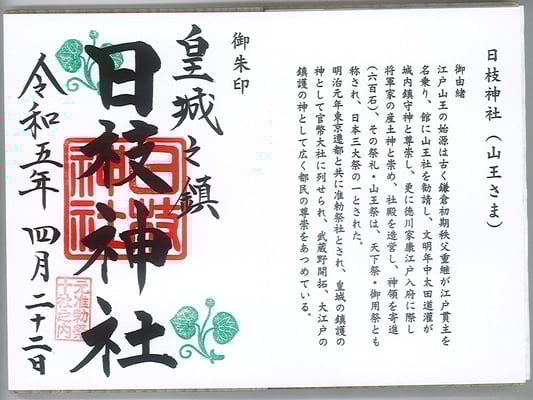 日枝神社（山王さま）
御由緒
江戸山王の始源は古く鎌倉初期秩父重継が江戸貫主を
名乗り、館に山王社を勧請し、文明年中太田道灌が
城内鎮守神と尊崇し、更に徳川家康江戸入府に際し
将軍家の産土神と崇め、社殿を造営し、神領を寄進
（六百石）、その祭礼・山王祭は、天下祭・御用祭とも
称され、日本三大祭の一とされた。
明治元年東京遷都と共に准勅祭社とされ、皇城の鎮護の
神として官幣大社に列せられ、武蔵野開拓、大江戸の
鎮護の神として広く都民の尊崇をあつめている。
御朱印
皇城之鎮
日枝神社
日枝
神社
元准勅祭
十社之内
令和五年 四月二十二日